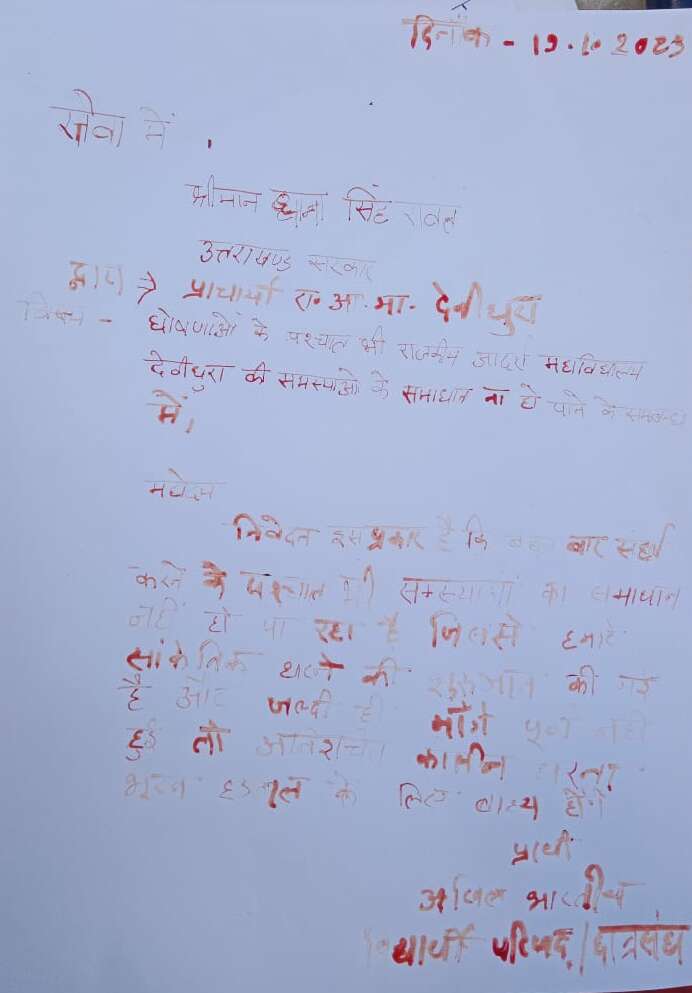 दिनाँक - 19.10.2023
सेवा में,
श्रीमान धना सिंह रावत
उत्तराखण्ड सरकार
द्वारा → प्राचार्या रा. आ. मा. देवीधुरा
विषय - घोषणाओं के पश्चात भी राजकीय आदर्श महाविद्यालय
देवीधुरा की समस्याओं के समाधान ना हो पाने के सम्बन्ध
में।
महोदय
निवेदन इस प्रकार है कि बार संघर्ष
करने के पश्चात भी समस्याओं का समाधान
नहीं हो पा रहा है जिससे हमारे
सांकेतिक धरने की शुरुआत की गई
है और जल्दी ही माँगे पूर्ण नहीं
हुई तो कालीन धरना
भूख हड़ताल के लिए बाध्य होंगे
प्रार्थी
अखिल भारतीय
विद्यार्थी परिषद्/छात्रसंघ